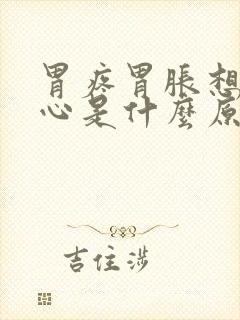 胃疼胃脹想
心是什麼原
吉住涉